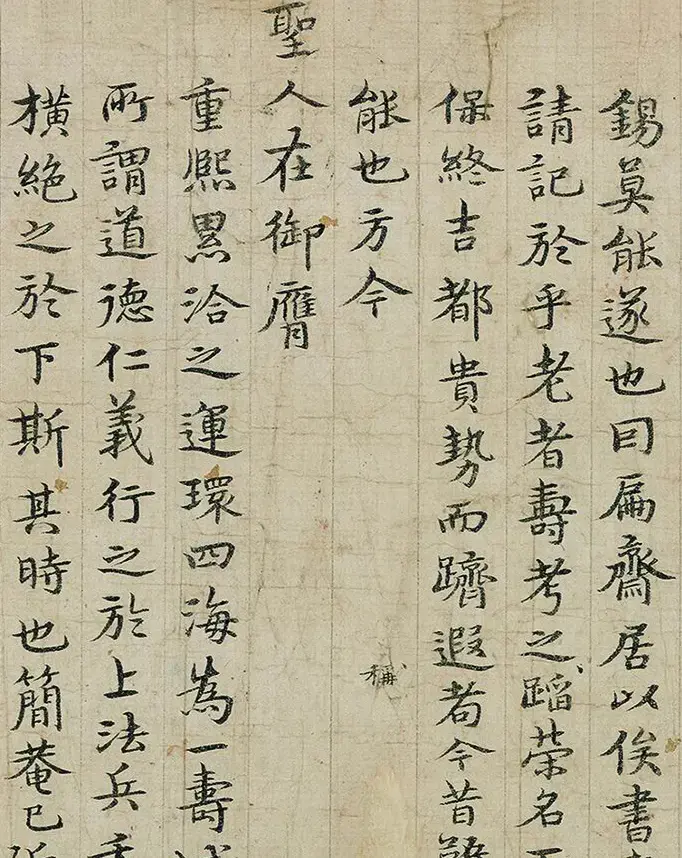 錫莫能遂也因扁齋居以俟書
請記於乎老者壽考之蹈榮名
保終吉都貴勢而躋遐耇今昔
能也方今
稱
聖人在御膺
重熙累洽之運環四海為一壽
所謂道德仁義行之於上法兵
橫絶之於下斯其時也簡菴已